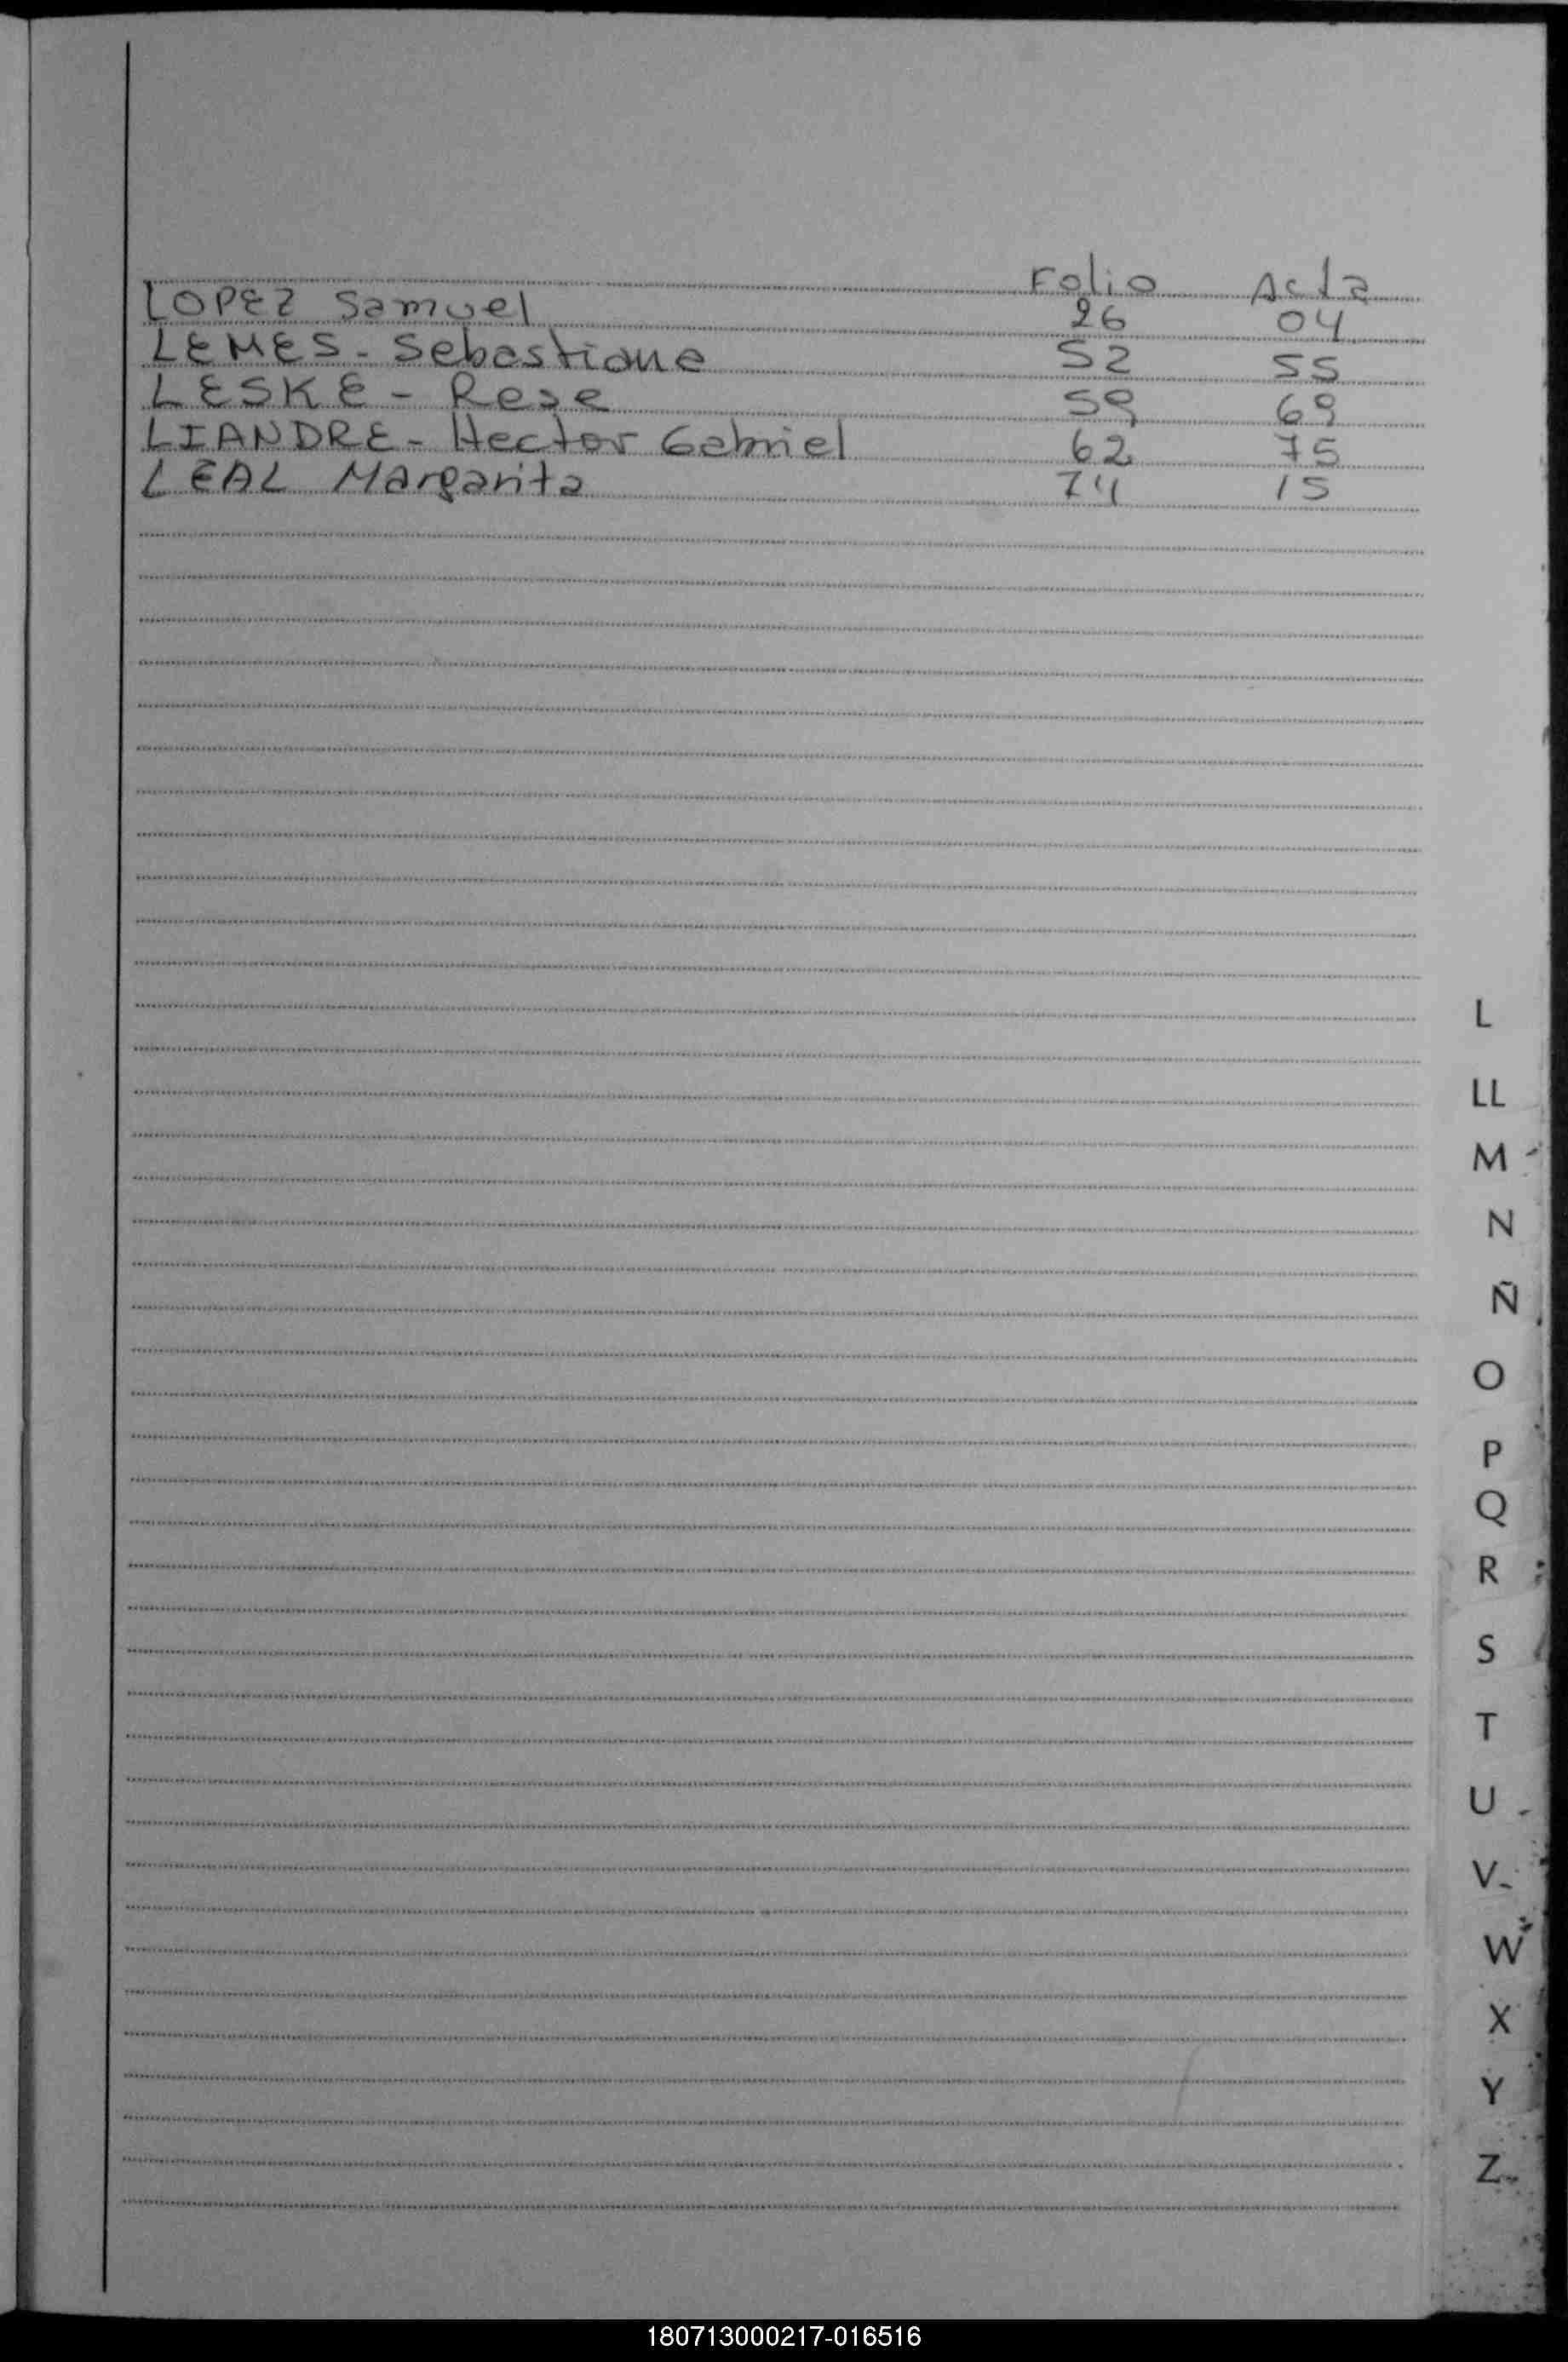 Folio Acta
LOPEZ Samuel 26 04
LEMES - Sebastiana 52 55
LESKE - Rosa 59 69
LIANDRE - Hector Gabriel 62 75
LEAL Margarita 74 15
L
LL
M
N
Ñ
O
P
Q
R
S
T
U
V
W
X
Y
Z
180713000217-016516